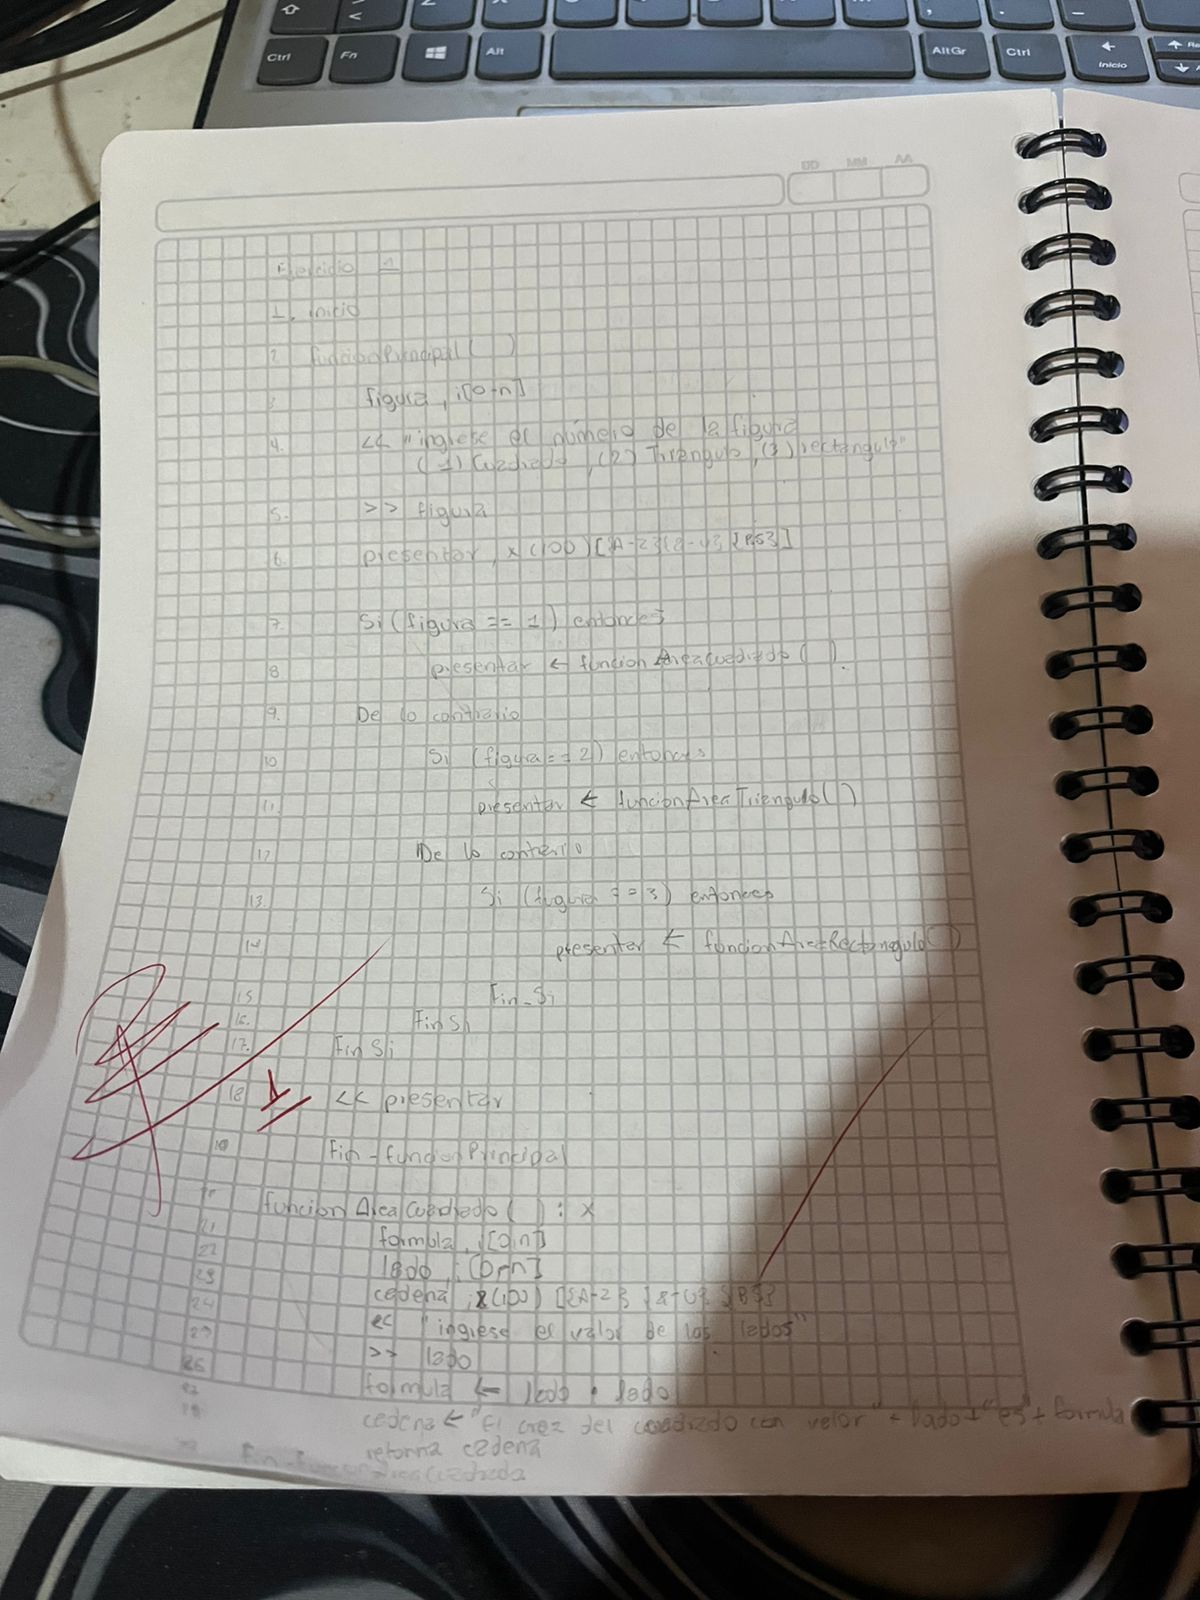 Ctrl Fn Alt AltGr Ctrl Inicio
DD MM AA
Ejercicio 1
1. inicio
2. funcionPrincipal( )
3. figura, i[0-n]
4. << "ingrese el número de la figura
(1) Cuadrado, (2) Triangulo, (3) rectangulo"
5. >> figura
6. presentar, x (100)
7. Si (figura == 1) entonces
8 presentar ← funcion AreaCuadrado( ).
9. De lo contrario
10 Si (figura == 2) entonces
11. presentar ← funcionAreaTriangulo( )
12 De lo contrario
13. Si (figura == 3) entonces
14. presentar ← funcionAreaRectangulo( )
15 Fin_Si
16. Fin Si
17. Fin Si
18 1 << presentar
19 Fin-funcionPrincipal
funcion AreaCuadrado( ) : x
21 formula, i[0,n]
22 lado, i[0-n]
23 cadena, x(100)
24 << "ingrese el valor de los lados"
>> lado
26 formula ← lado * lado
cadena ← "El area del cuadrado con valor" + lado + "es" + formula
retorna cadena
AreaCuadrado